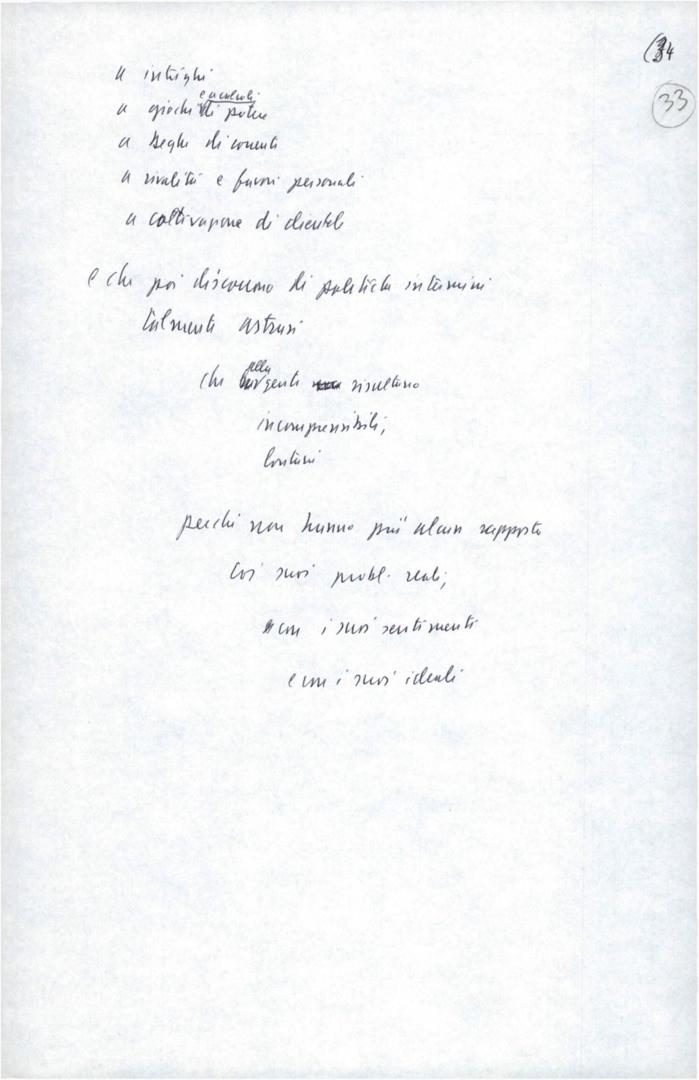 34
33
a intrighi
e a calcoli
a giochi di potere
a beghe di correnti
a rivalità e favori personali
a coltivazione di clientele
e che poi discorrono di politiche in termini
talmente astrusi
che alla gente risultano
incomprensibili,
lontani
perché non hanno più alcun rapporto
coi suoi probl. reali,
con i suoi sentimenti
e con i suoi ideali